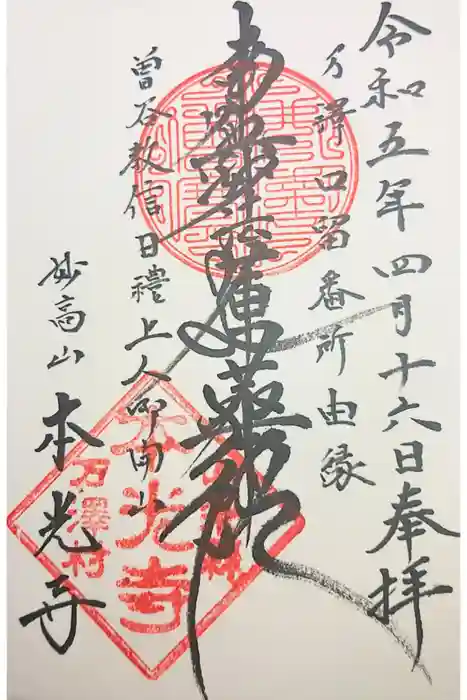 令和五年四月十六日奉拝
万澤口留番所由縁
南無妙法蓮華経
曽谷教信日禮上人御開山
妙高山 本光寺
本光寺
万澤村